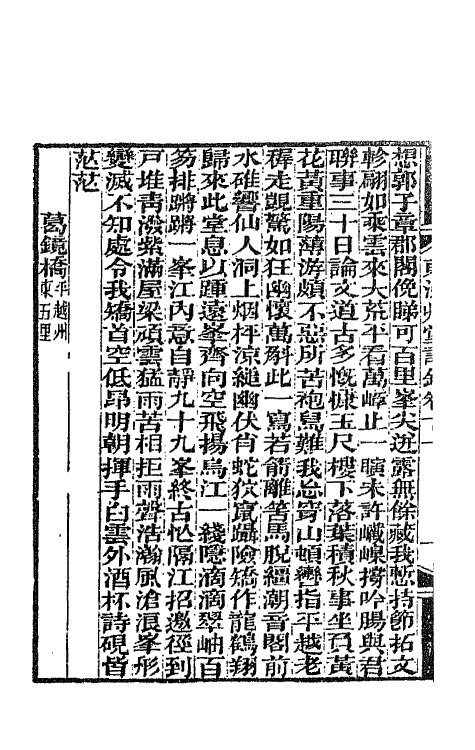 想郭子章郡閣俛睇可百里峯尖迸露無餘藏我憗持節拓文
軫翩如乘雲來大荒平看萬嶂止一曠未許巇嵲撐吟腸與君
聯事三十日論文道古多慨慷玉尺樓下落葉積秋事坐負黃
花黃重陽薄游頗不惡所苦袍舄難我怠穿山頓轡指平越老
穉走覬驚如狂幽懷萬斛此一寫若箭離筈馬脫繮潮音閣前
水碓響仙人洞上烟枰涼縋幽伏首蛇狖竄躡險矯作龍鶴翔
歸來此堂息以踵遠峯齊向空飛揚烏江一綫隱滴滴翠岫百
笏排蹡蹡一峯江內意自靜九十九峯終古忙隔江招邀徑到
戸堆靑潑紫滿屋梁頑雲猛雨苦相拒雨聲浩瀚風滄浪峯形
變滅不知處令我矯首空低昂明朝揮手白雲外酒杯詩硯皆
茫茫
葛鏡橋平越州東五里
東洲艸堂詩鈔卷十一